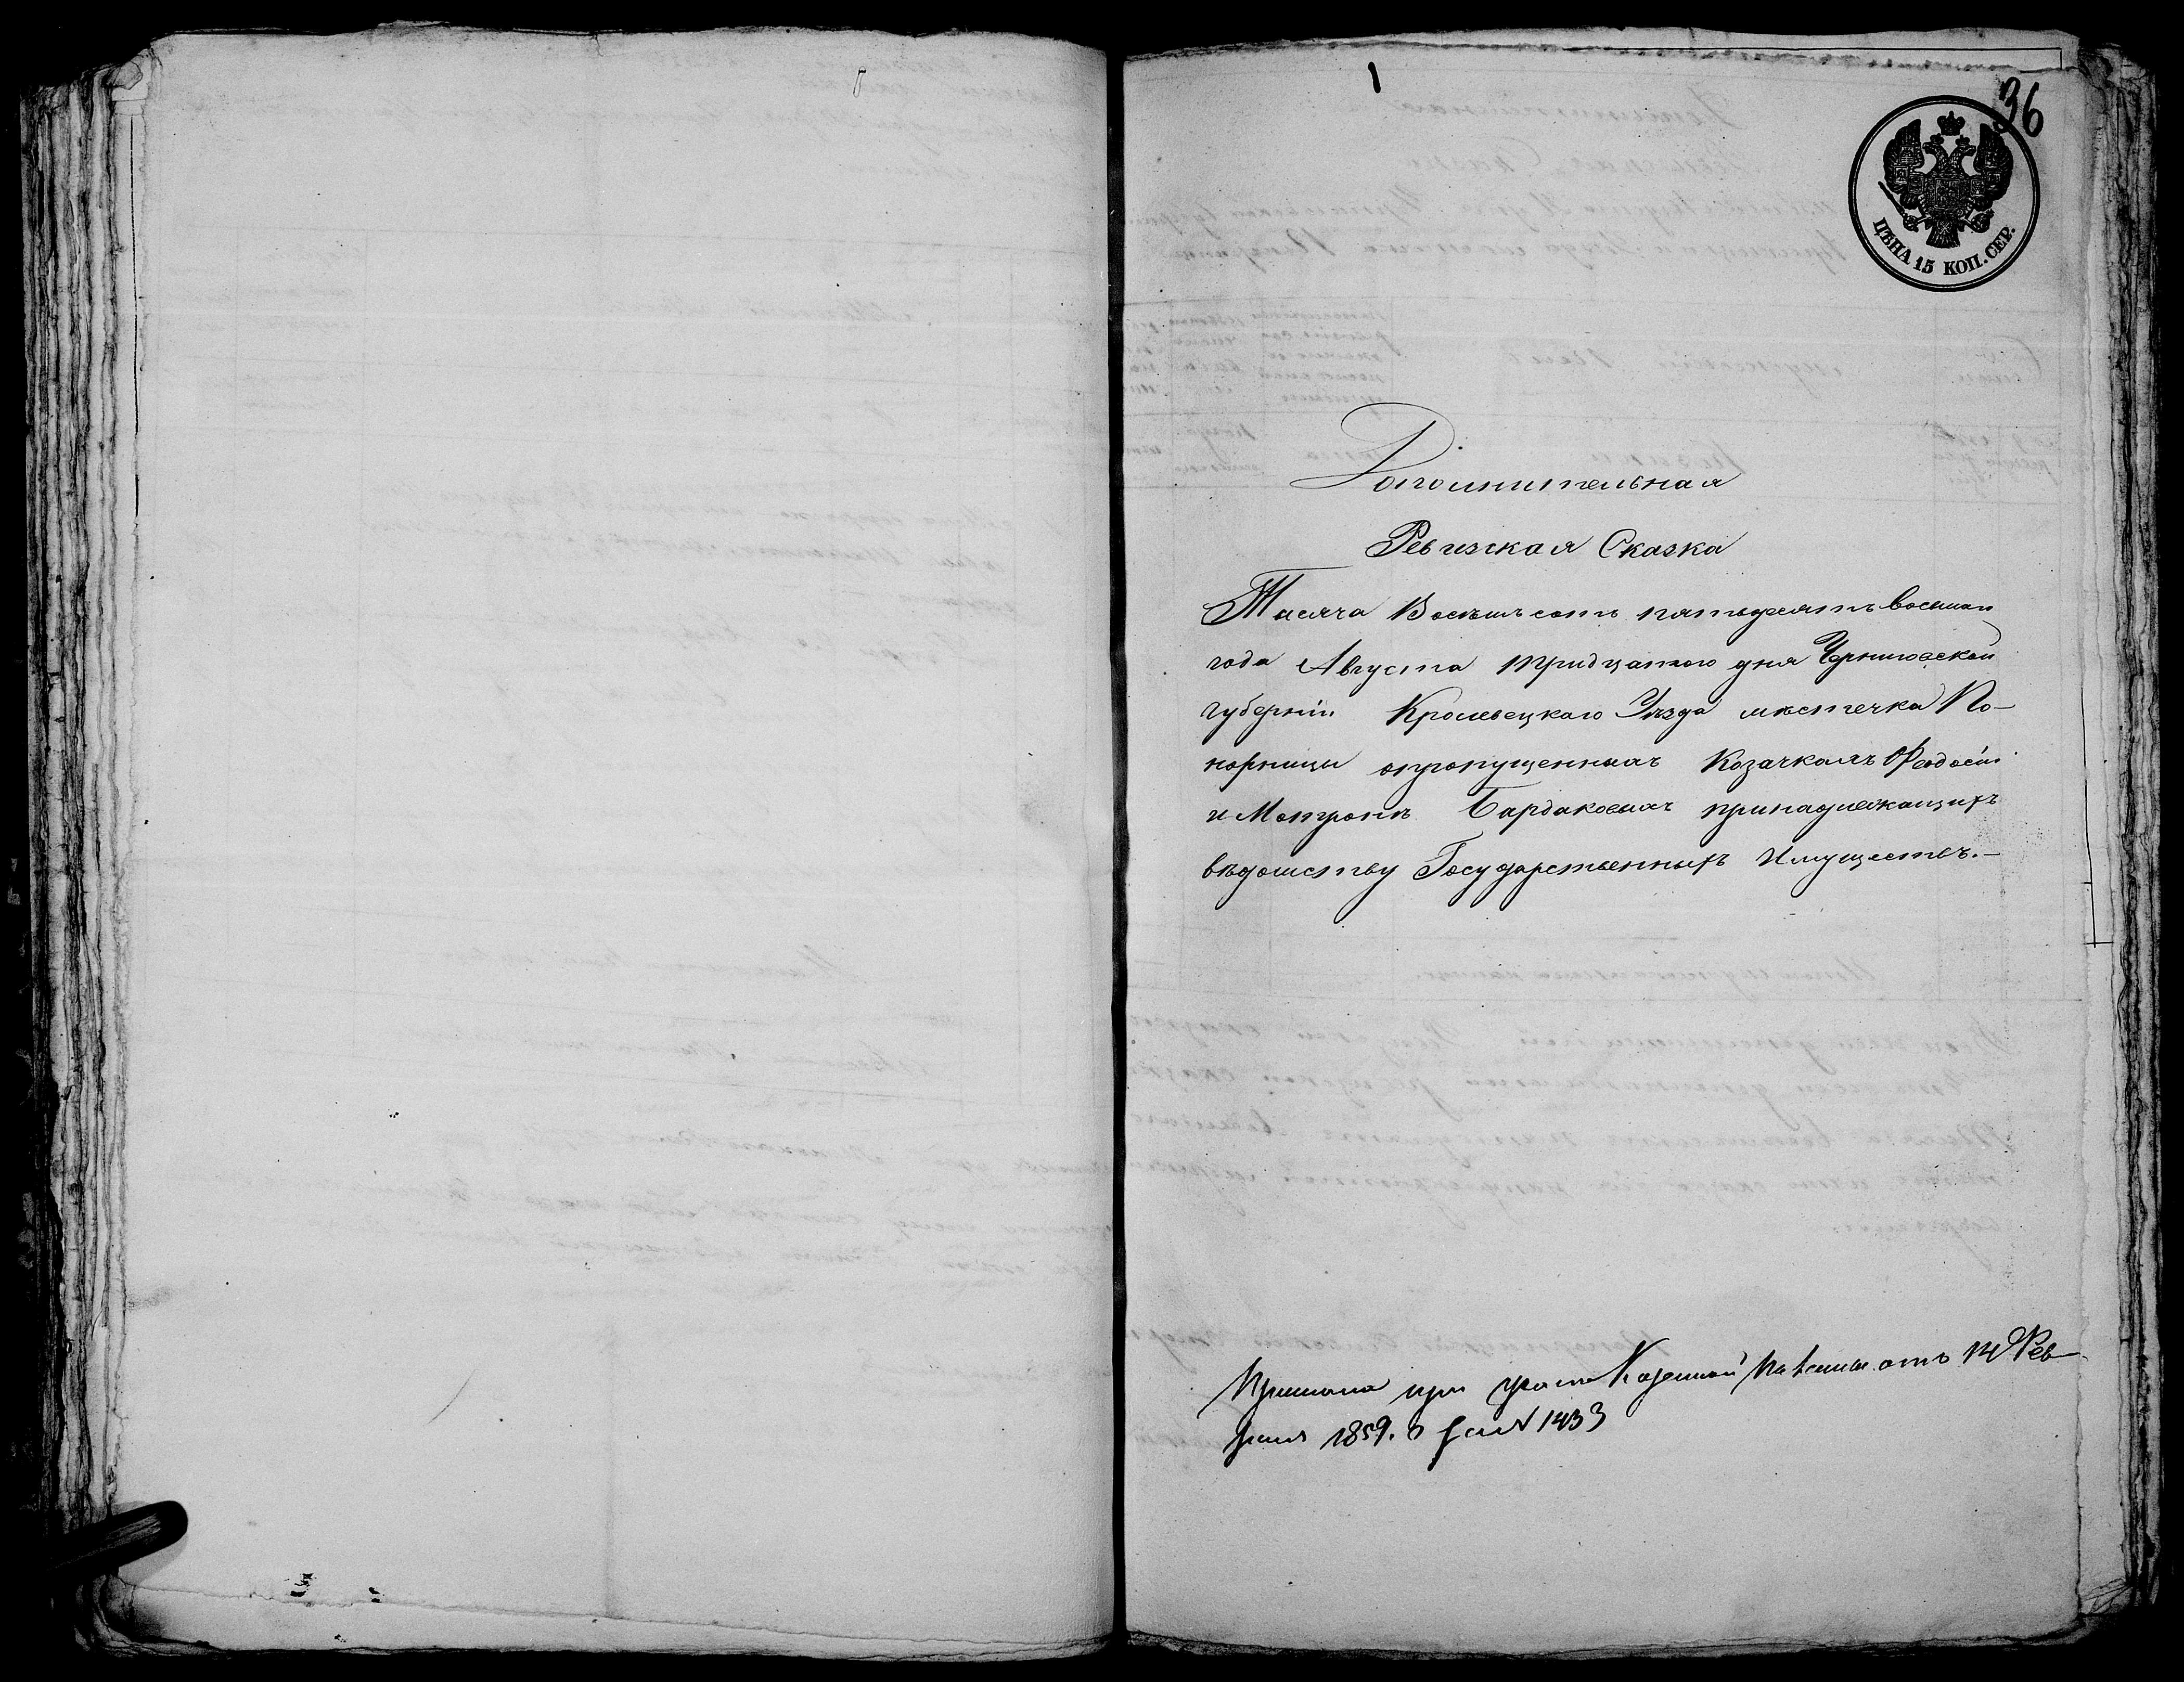 1
36
ЦѢНА 15 КОП. СЕР.
Дополнительная
Ревизская Сказка
Тысяча Восемьсотъ пятьдесятъ восьмаго
года Августа тридцатого дня Черниговской
губерніи Кролевецкаго Уѣзда мѣстечка По-
норницы опропущенныхъ Козачкахъ Феодосіи
и Мотронѣ Бардаковыхъ принадлежащихъ
вѣдомству Государственныхъ Имуществъ.—
при Казенной Палаты отъ 14 Фев-
раля 1859. 1433